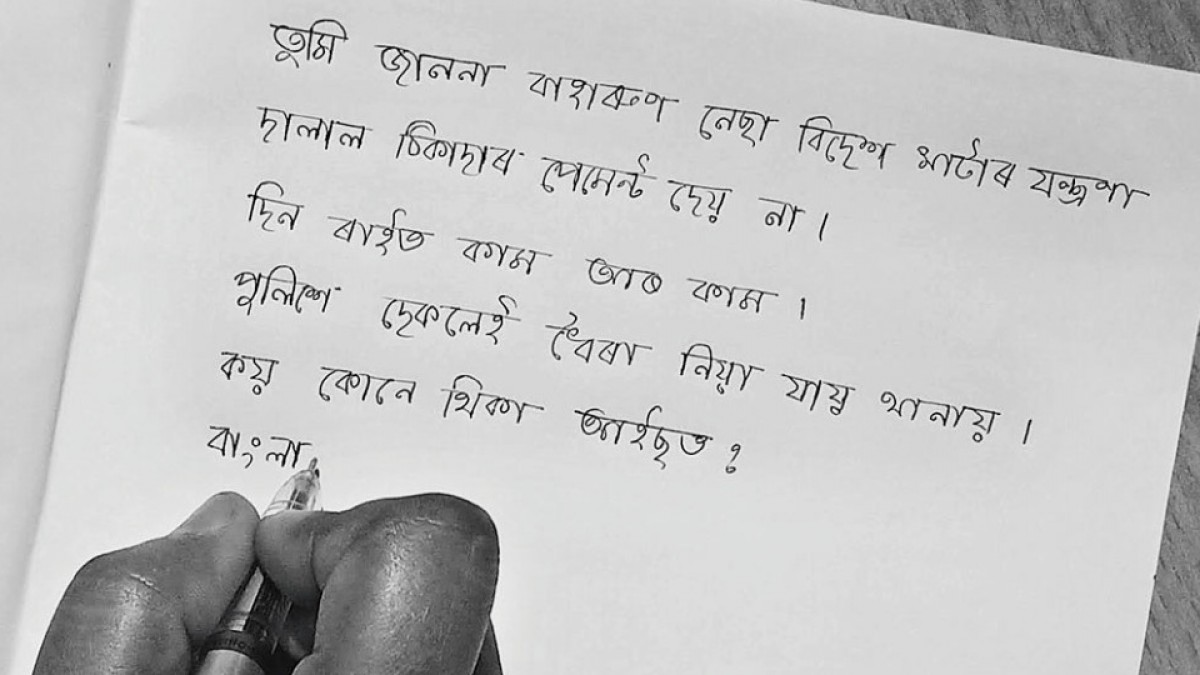 তুমি জাননা বাহাৰুণ নেছা বিদেশ মাটাৰ যন্ত্রণা
দালাল ঠিকাদাৰ পেমেন্ট দেয় না।
দিন ৰাইত কাম আৰ কাম।
পুলিশে দেকলেই ধৈৰা নিয়া যায় থানায়।
কয় কোনে থিকা আইছত?
বাংলা